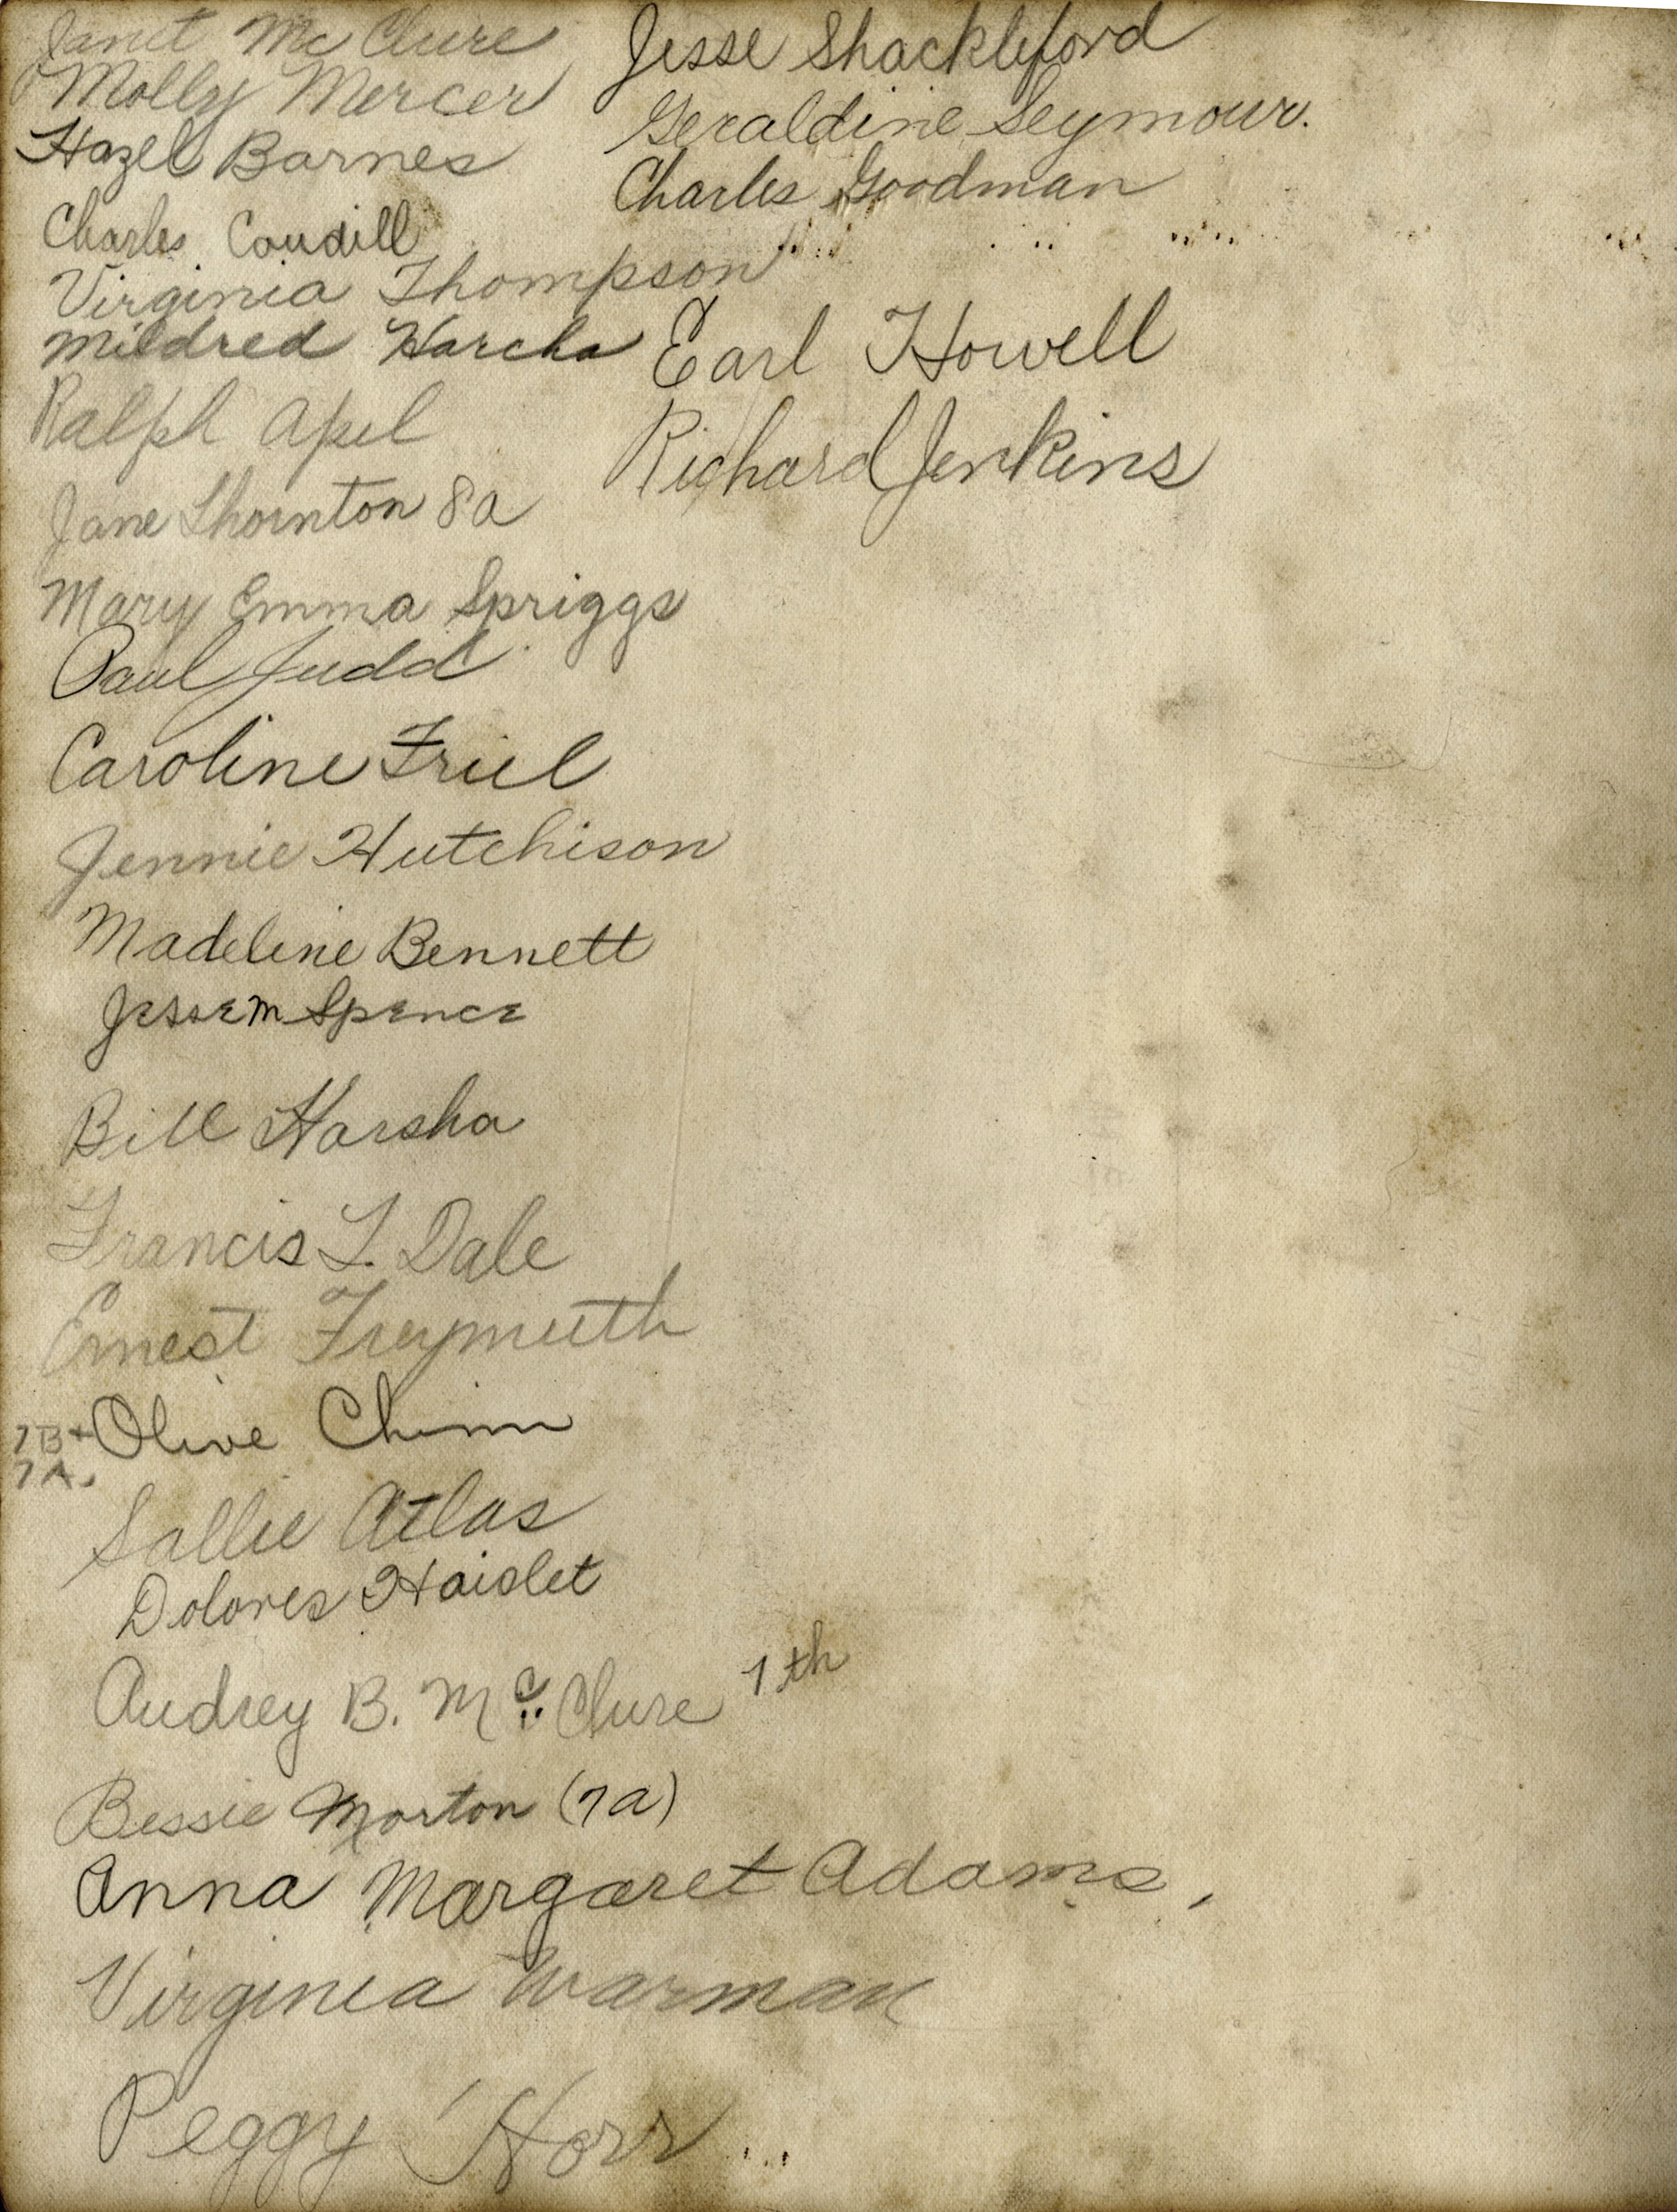 Janet McClure
Molly Mercer
Hazel Barnes
Charles Caudill
Virginia Thompson
Mildred Harcha
Ralph Apel
Jane Thornton 8a
Mary Emma Spriggs
Paul Judd
Caroline Friel
Jennie Hutchison
Madeline Bennett
Jesse M Spence
Bill Harsha
Francis L. Dale
Ernest Freymuth
7B+ Olive Chinn
7A.
Sallie Atlas
Dolores Haislet
Audrey B. McClure 7th
Bessie Morton (7a)
Anna Margaret Adams,
Virginia Warman
Peggy Horr
Jesse Shackleford
Geraldine Seymour.
Charles Goodman
Earl Howell
Richard Jenkins